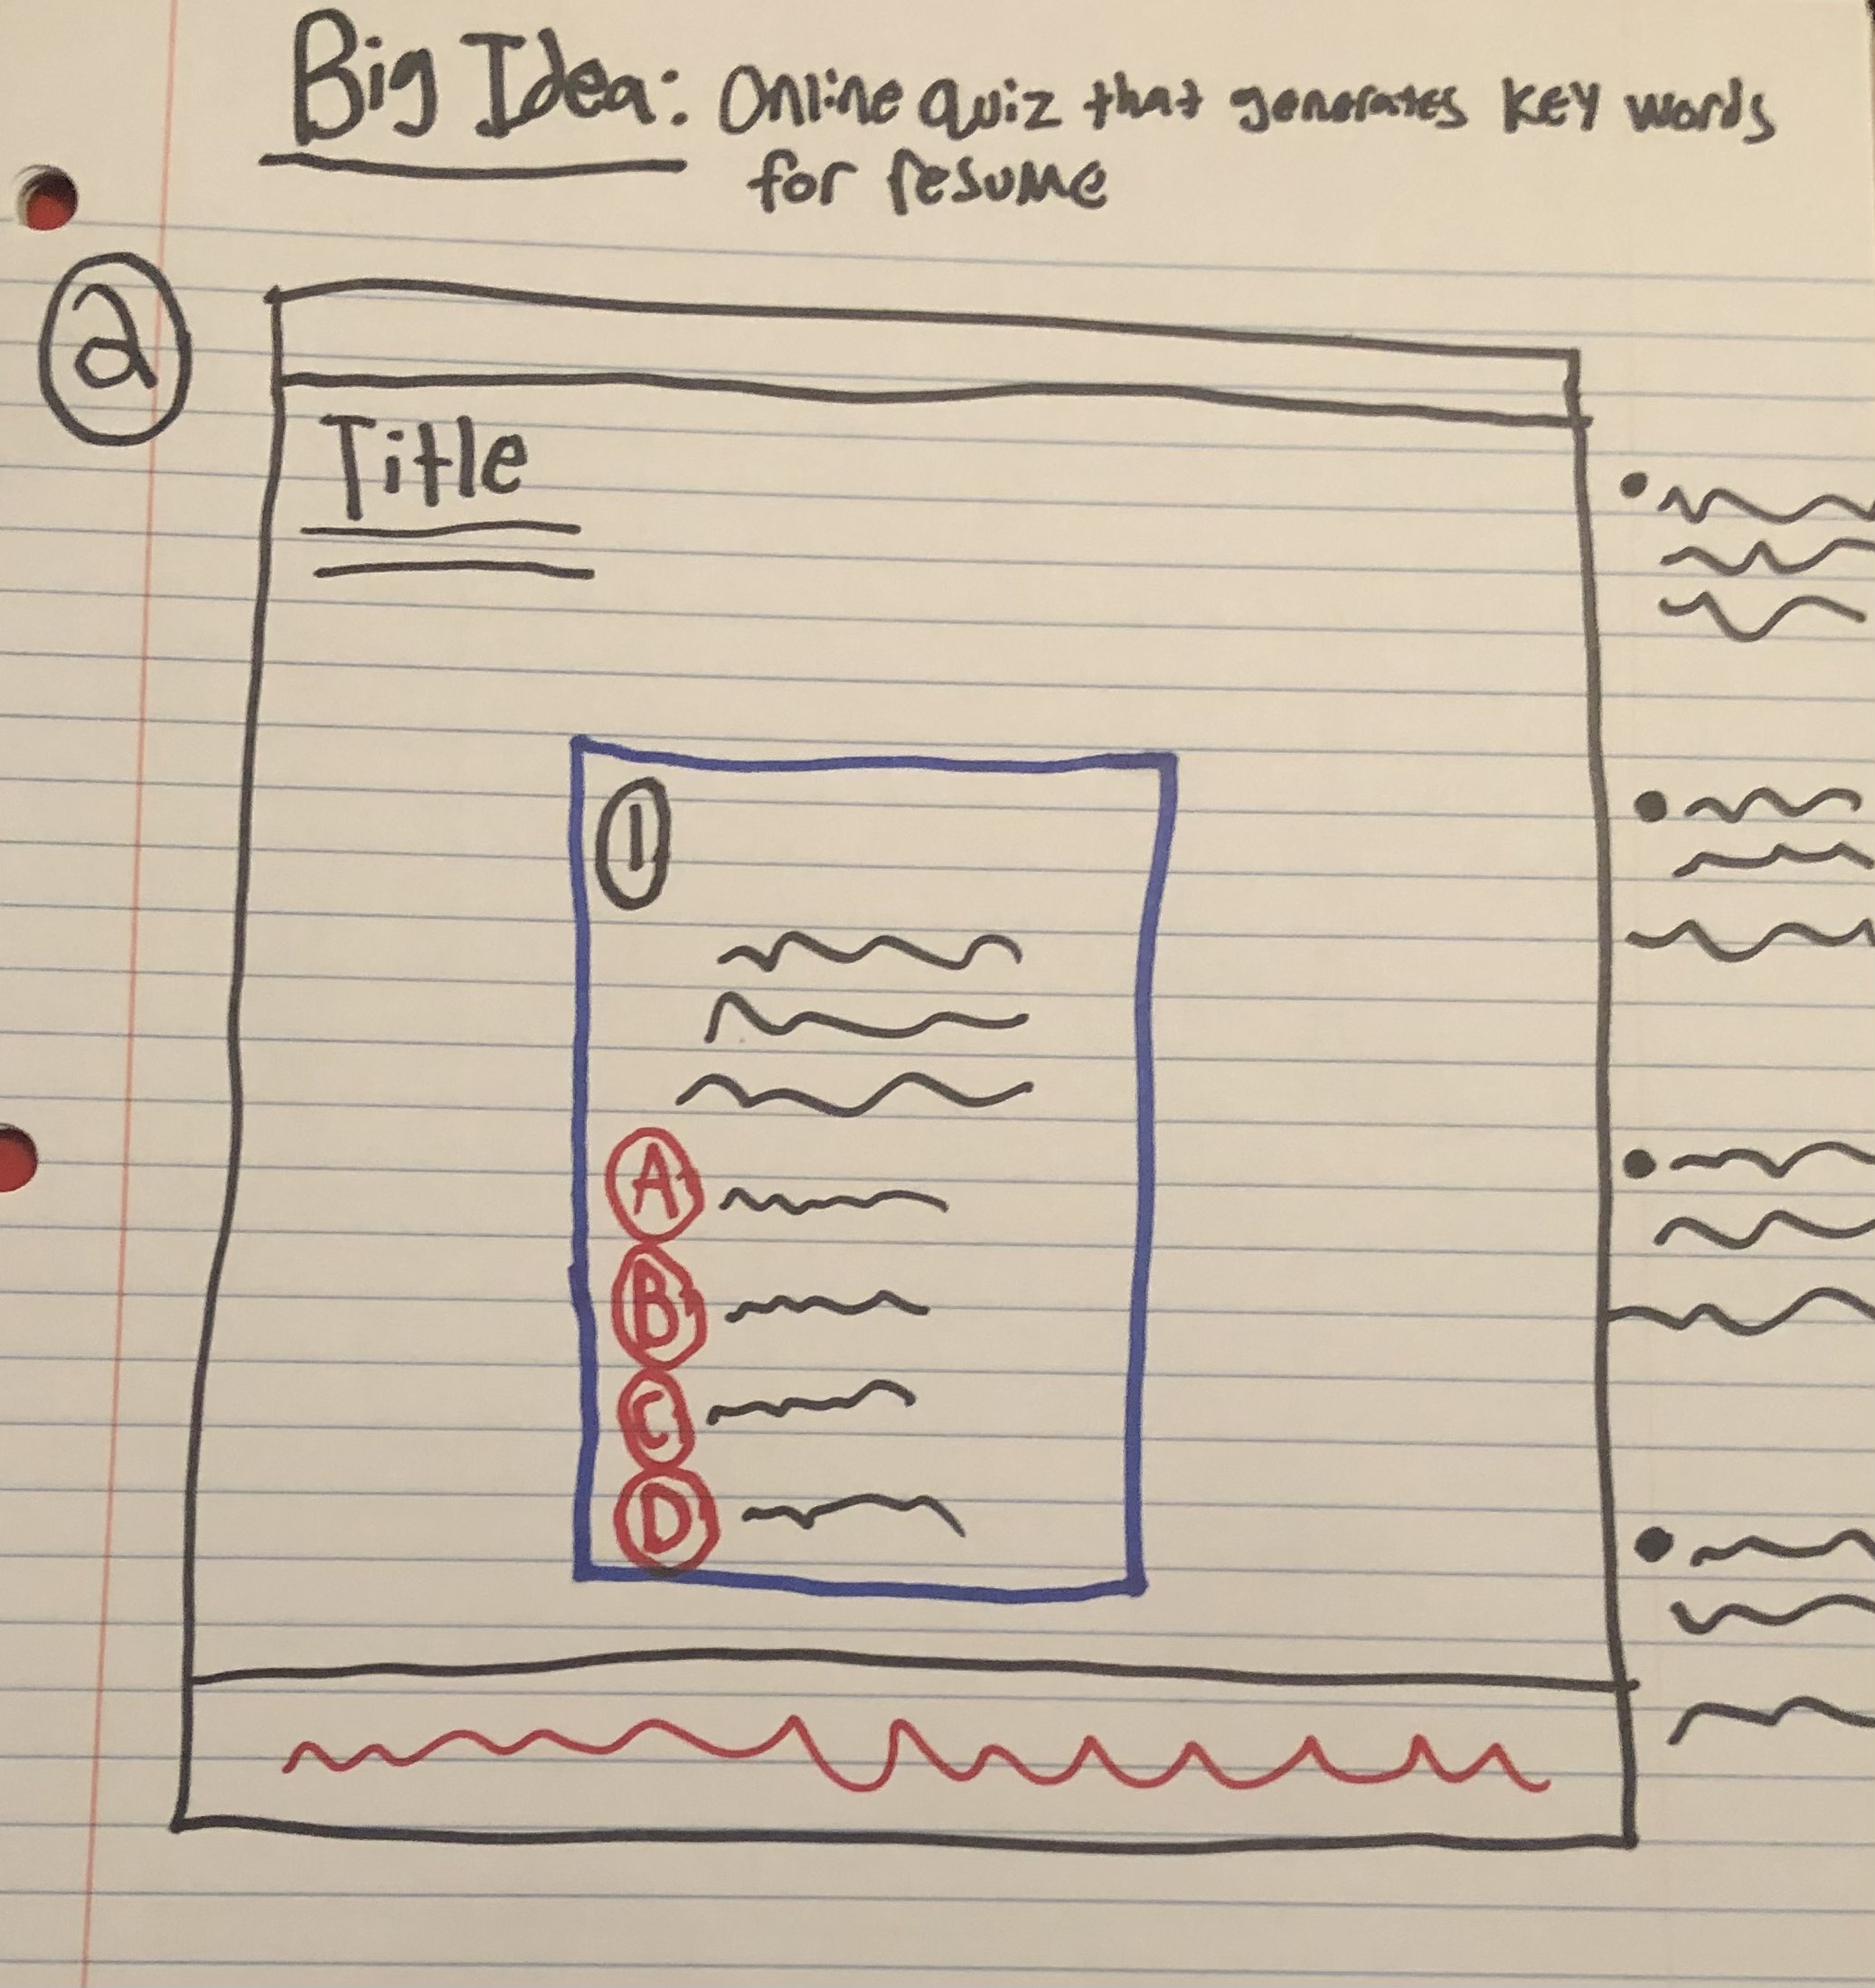 Big Idea: Online quiz that generates key words
for resume
2
Title
1
A
B
C
D